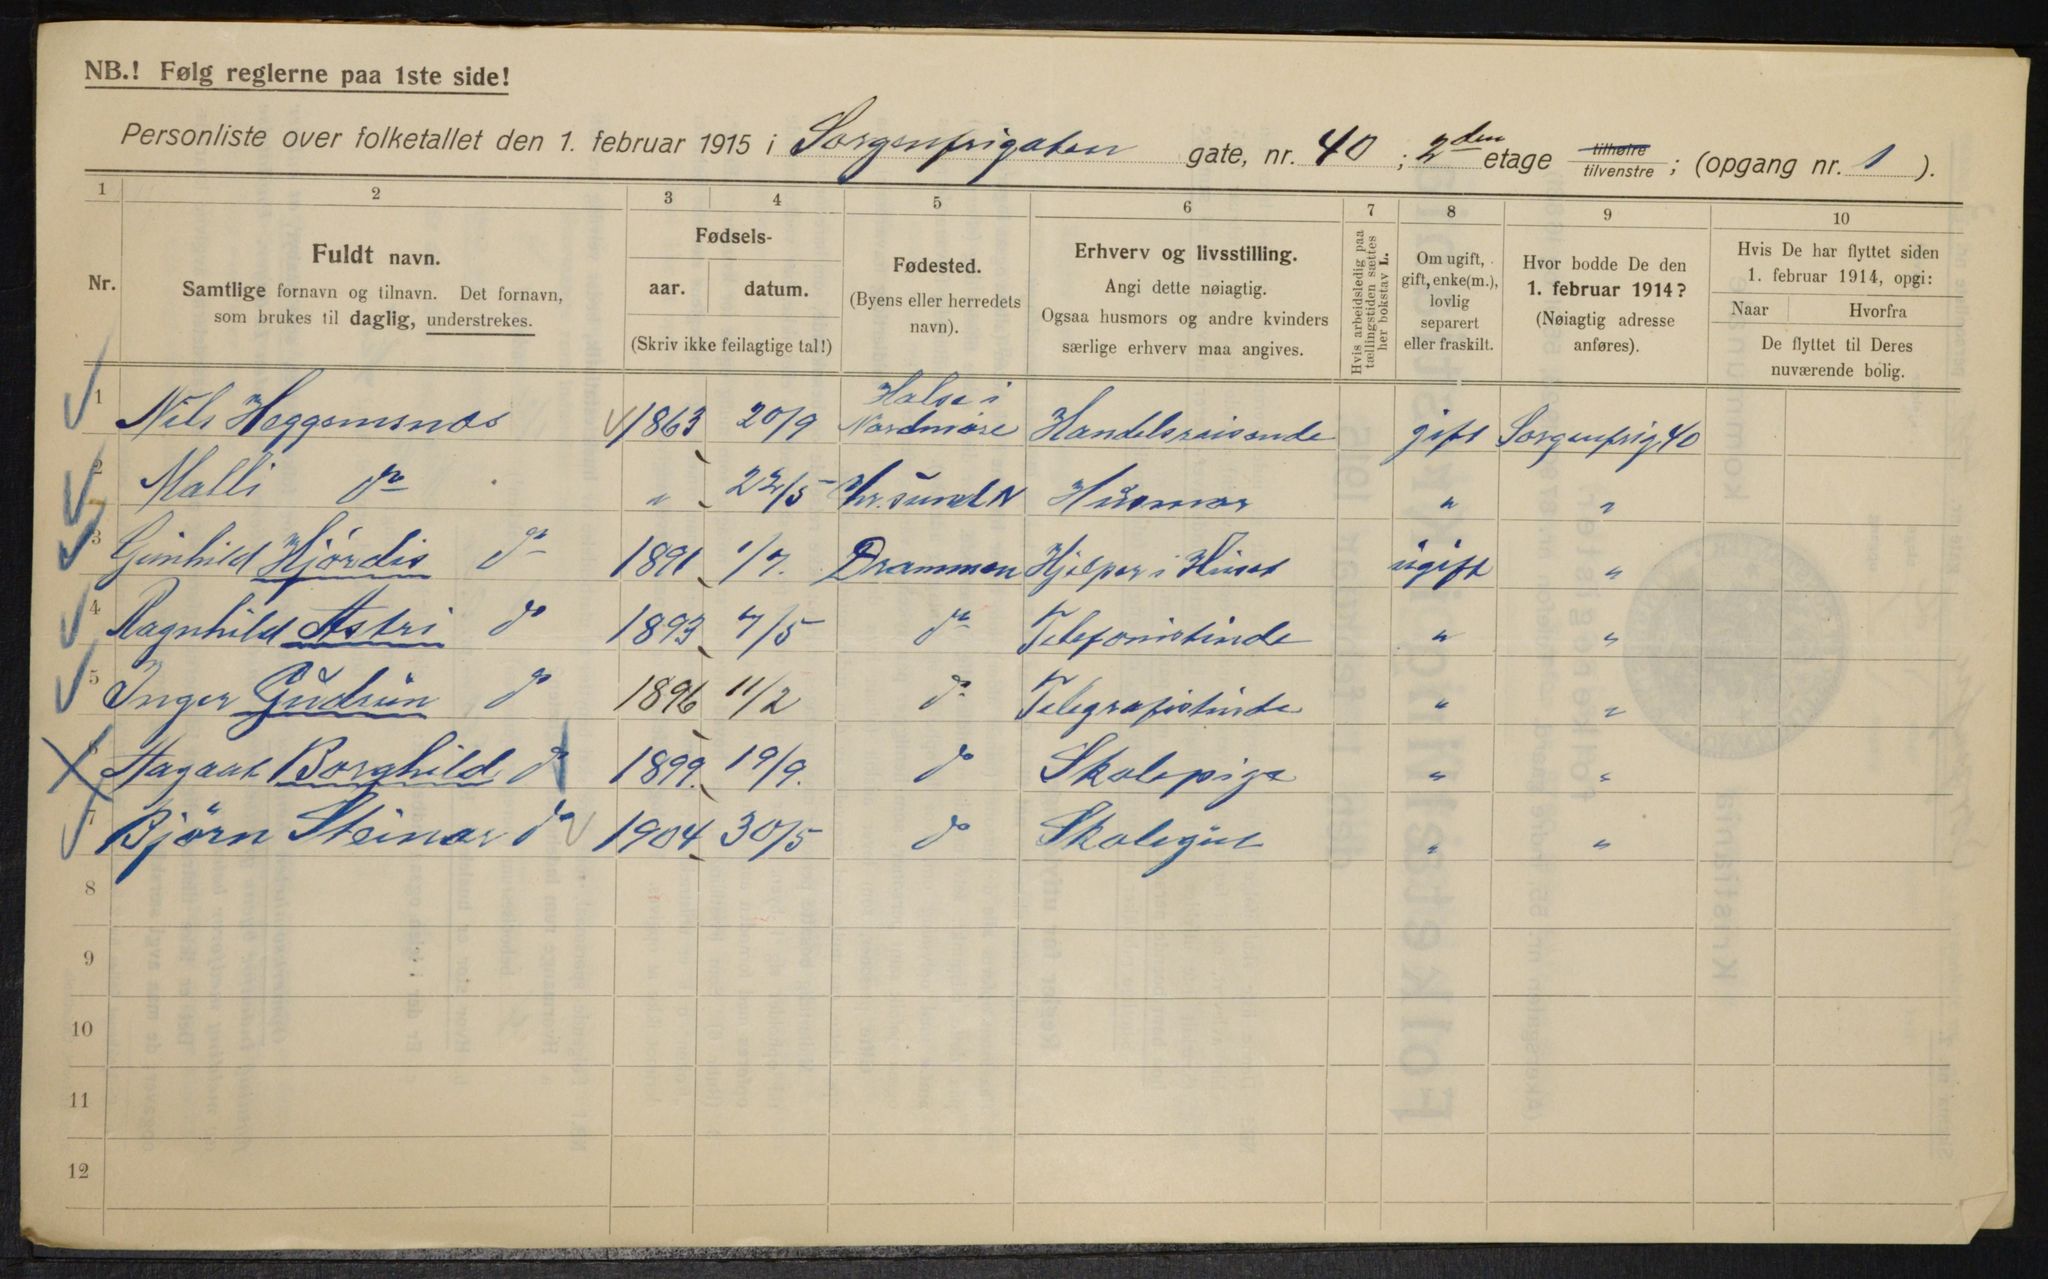 NB.! Følg reglerne paa 1ste side!
Personliste over folketallet den 1. februar 1915 i Sorgenfrigaten gate, nr. 40 ; 2den etage tilhøire tilvenstre ; (opgang nr. 1 ).
1 2 3 4 5 6 7 8 9 10
Nr.
Fuldt navn.
Samtlige fornavn og tilnavn. Det fornavn,
som brukes til daglig, understrekes.
Fødsels-
aar. datum.
(Skriv ikke feilagtige tal!)
Fødested.
(Byens eller herredets
navn).
Erhverv og livsstilling.
Angi dette nøiagtig.
Ogsaa husmors og andre kvinders
særlige erhverv maa angives.
Hvis arbeidsledig paa
tællingstiden sættes
her bokstav L.
Om ugift,
gift, enke(m.),
lovlig
separert
eller fraskilt.
Hvor bodde De den
1. februar 1914?
(Nøiagtig adresse
anføres).
Hvis De har flyttet siden
1. februar 1914, opgi:
Naar Hvorfra
De flyttet til Deres
nuværende bolig.
1 Nils Heggemsnæs 1863 20/9 Halse i Nordmøre Handelsreisende gift Sorgenfrig 40
2 Malli do " /5 Kr.sund N Husmor " "
3 Gunhild Hjørdis do 1891 1/7. Drammen Hjelper i Huset ugift "
4 Ragnhild Astri do 1893 7/5 do Telefonistinde " "
5 Inger Gudrun do 1896 11/2 do Telegrafistinde " "
6 Aagaat Borghild do 1899. 19/9. do Skolepige " "
7 Bjørn Steinar do 1904 30/5 do Skolegut " "
8
9
10
11
12